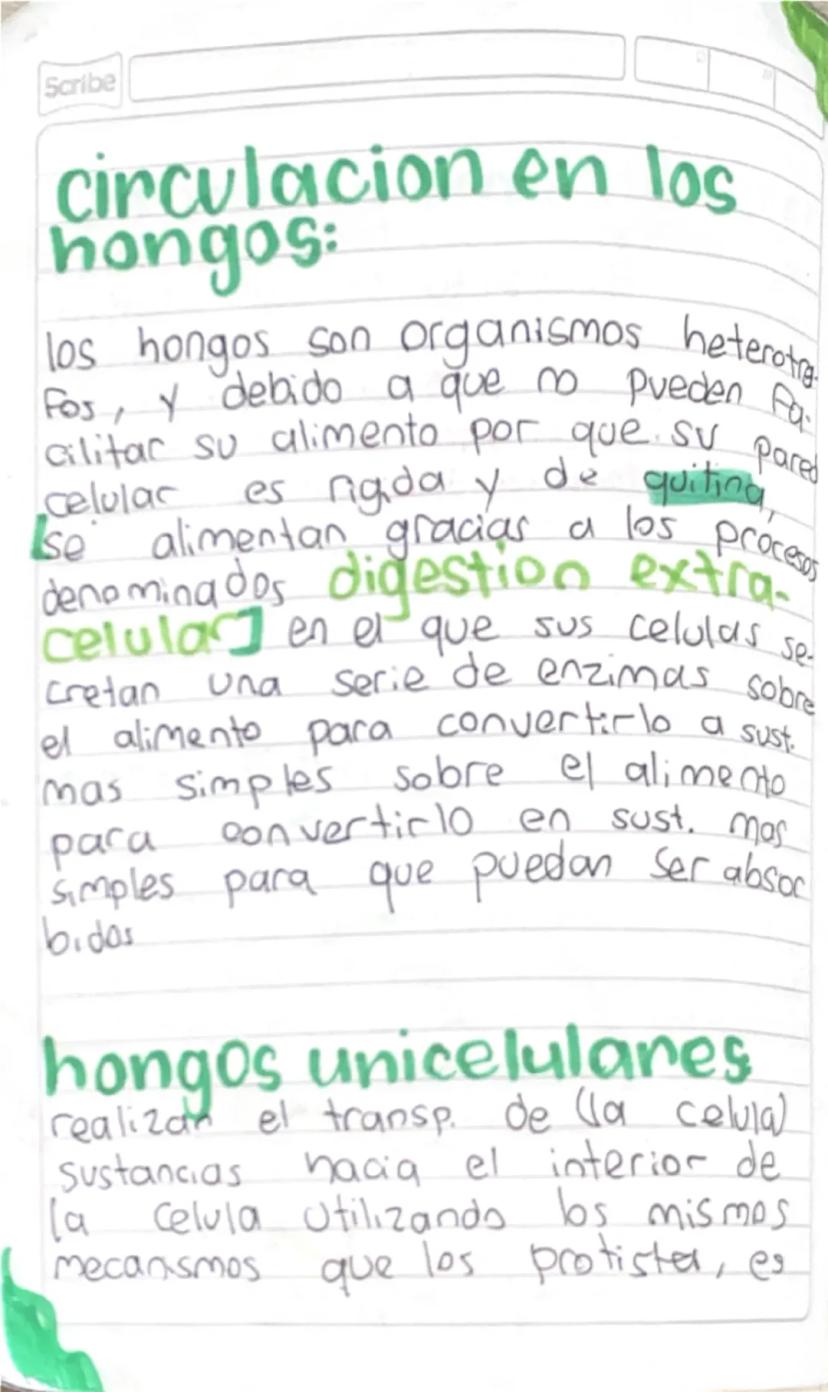 Scribe
circulacion en los
hongos:
los hongos son organismos heterotro-
fos, y debido a que no pueden fa-
cilitar su alimento por que su pared
celular es rigida y de quitina,
[se alimentan gracias a los procesos
denominados digestion extra-
celular] en el que sus celulas se-
cretan una serie de enzimas sobre
el alimento para convertirlo a sust.
mas simples sobre el alimento
para convertirlo en sust. mas
simples para que puedan ser absor
bidas
hongos unicelulares
realizan el transp. de (la celula)
sustancias hacia el interior de
la celula utilizando los mismos
mecanismos que los protista, es